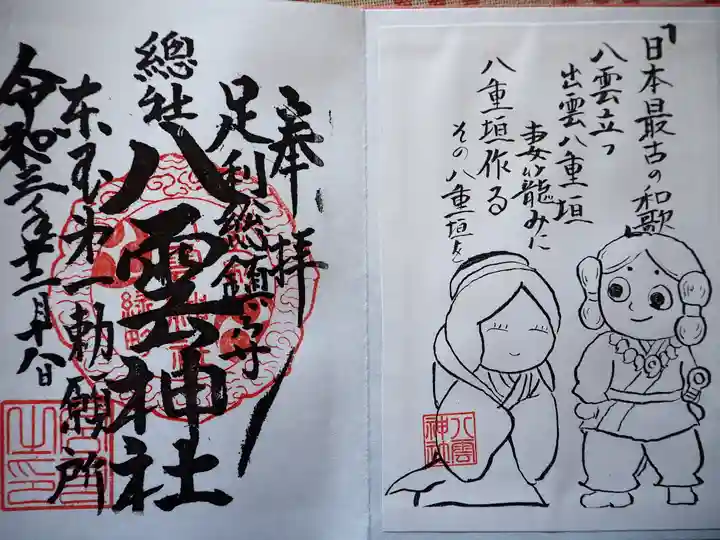 奉拝
足利総鎮守
總社
八雲神社
東国第一勅願所
令和三年十二月十八日
「日本最古の和歌」
八雲立つ
出雲八重垣
妻籠みに
八重垣作る
その八重垣を
八雲
神社